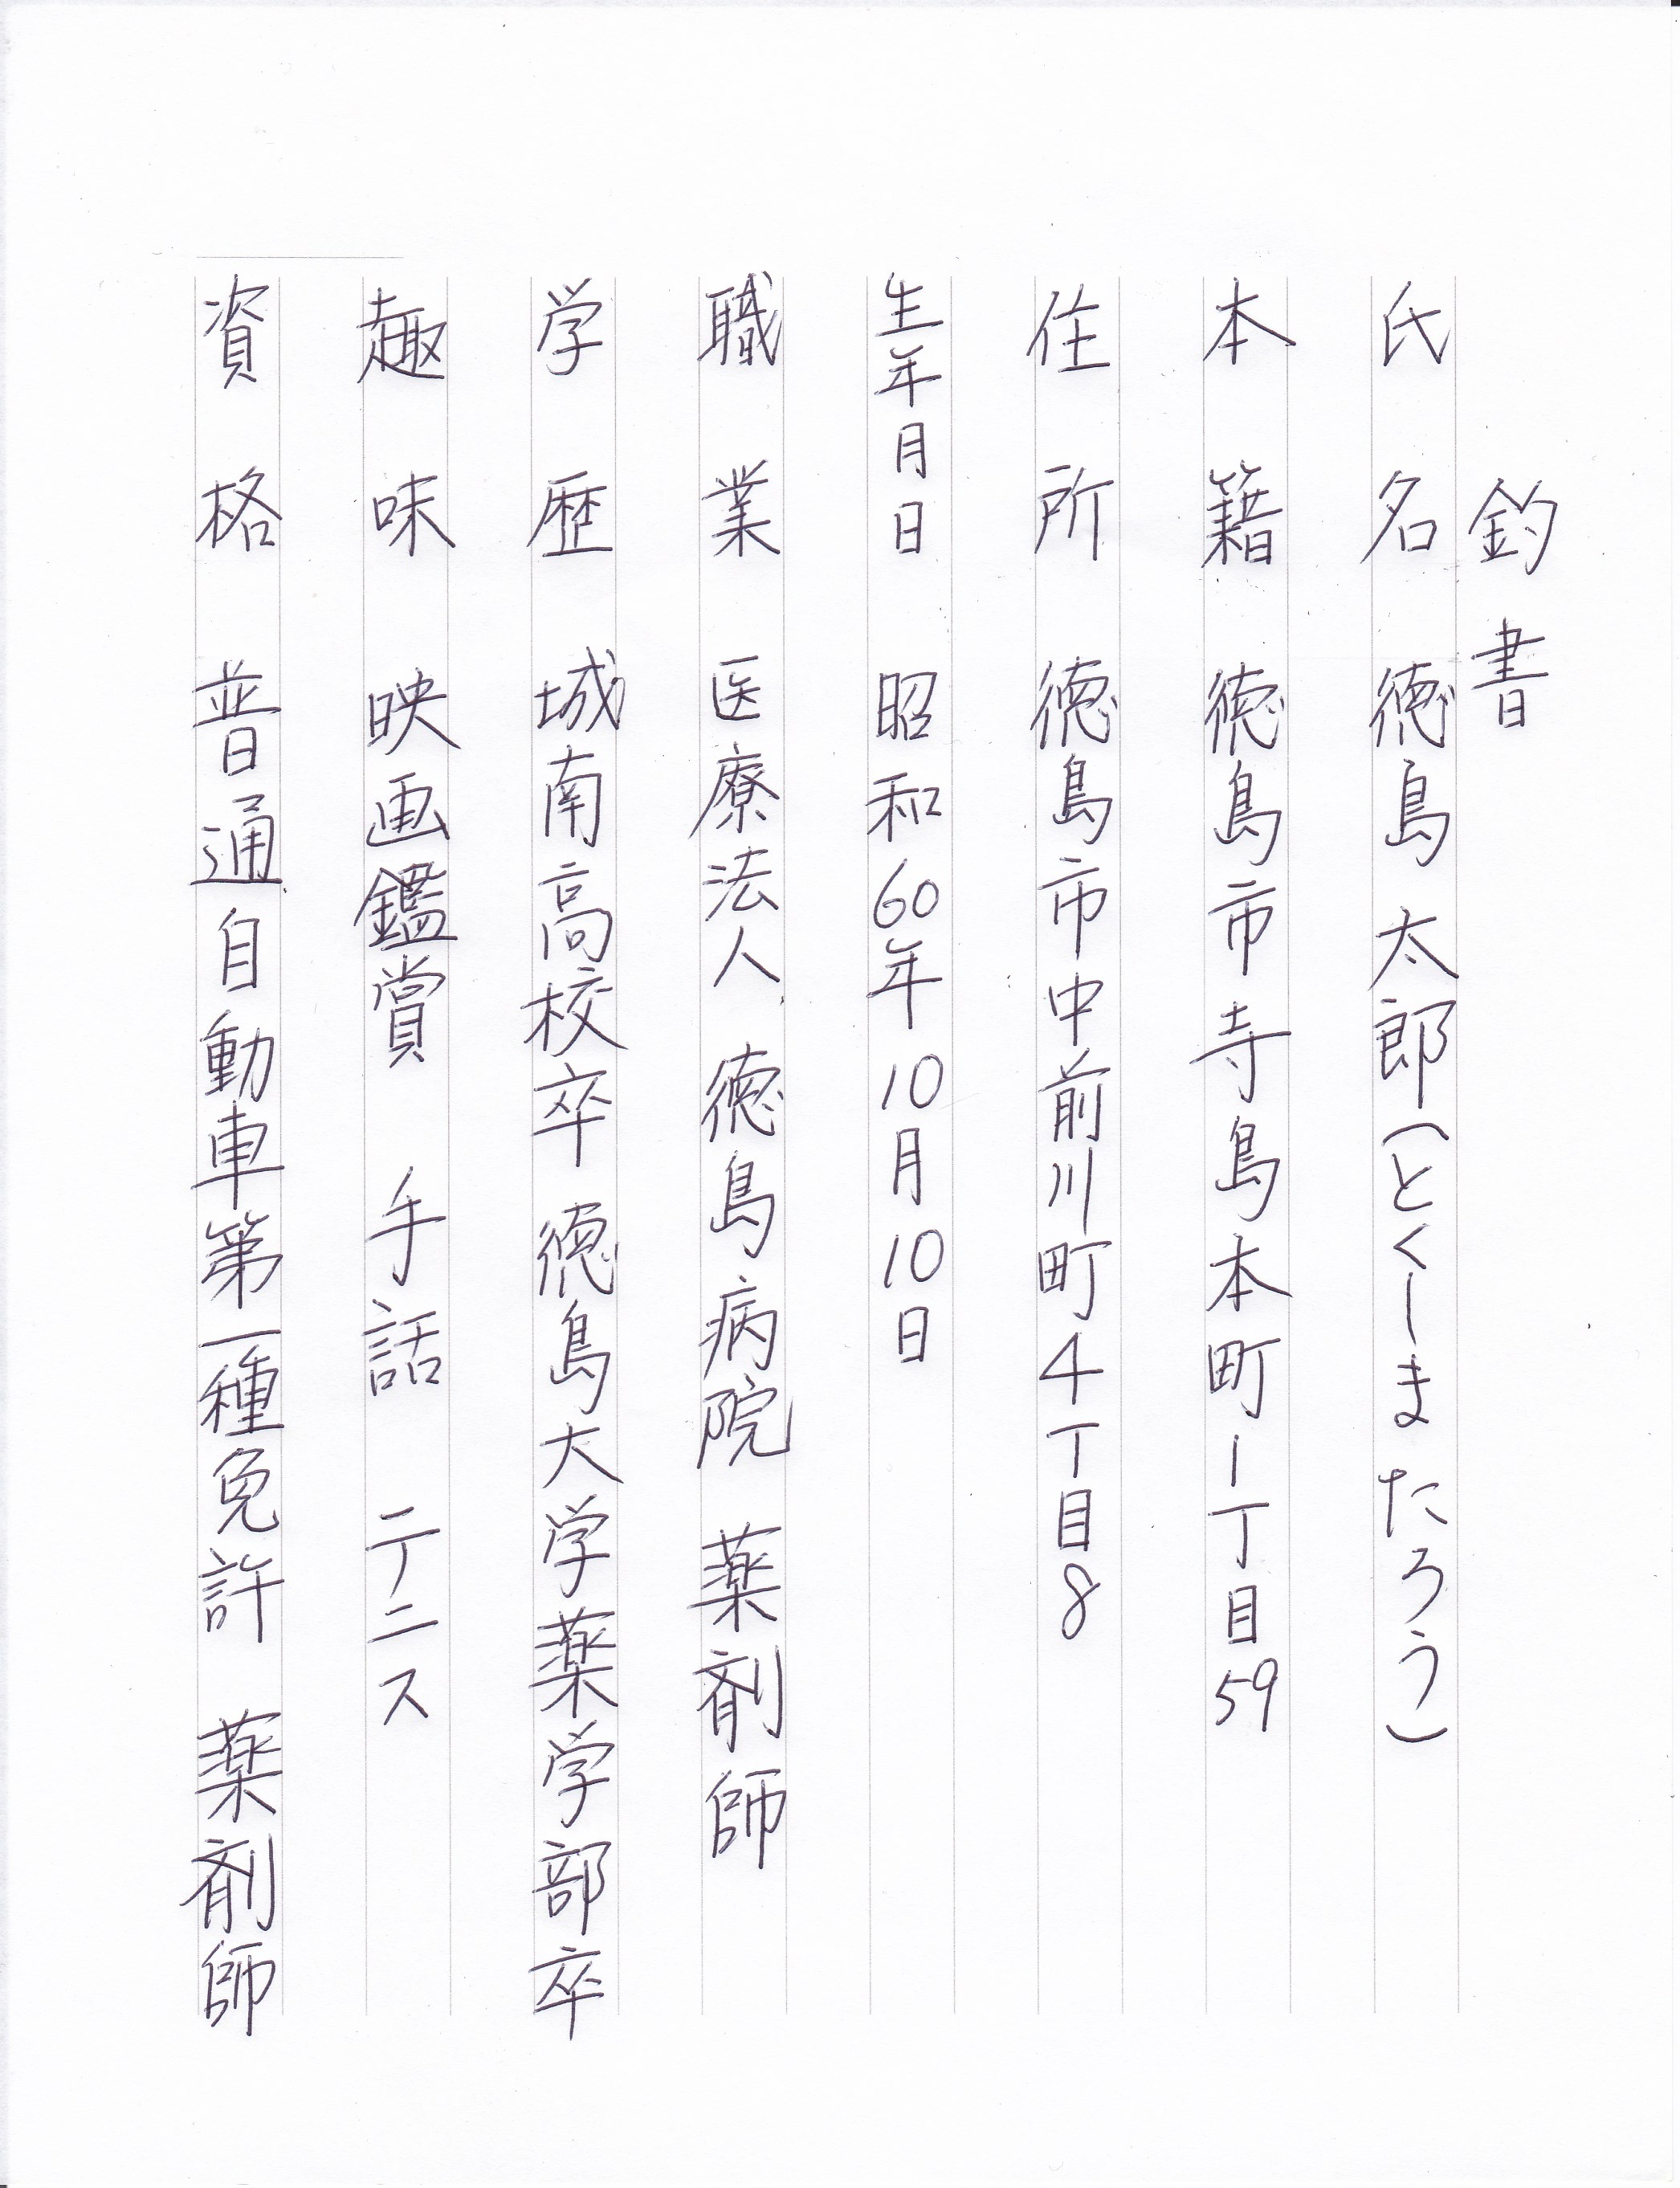 釣書
氏名 徳島 太郎(とくしま たろう)
本籍 徳島市寺島本町1丁目59
住所 徳島市中前川町4丁目8
生年月日 昭和60年10月10日
職業 医療法人 徳島病院 薬剤師
学歴 城南高校卒 徳島大学薬学部卒
趣味 映画鑑賞 手話 テニス
資格 普通自動車第一種免許 薬剤師